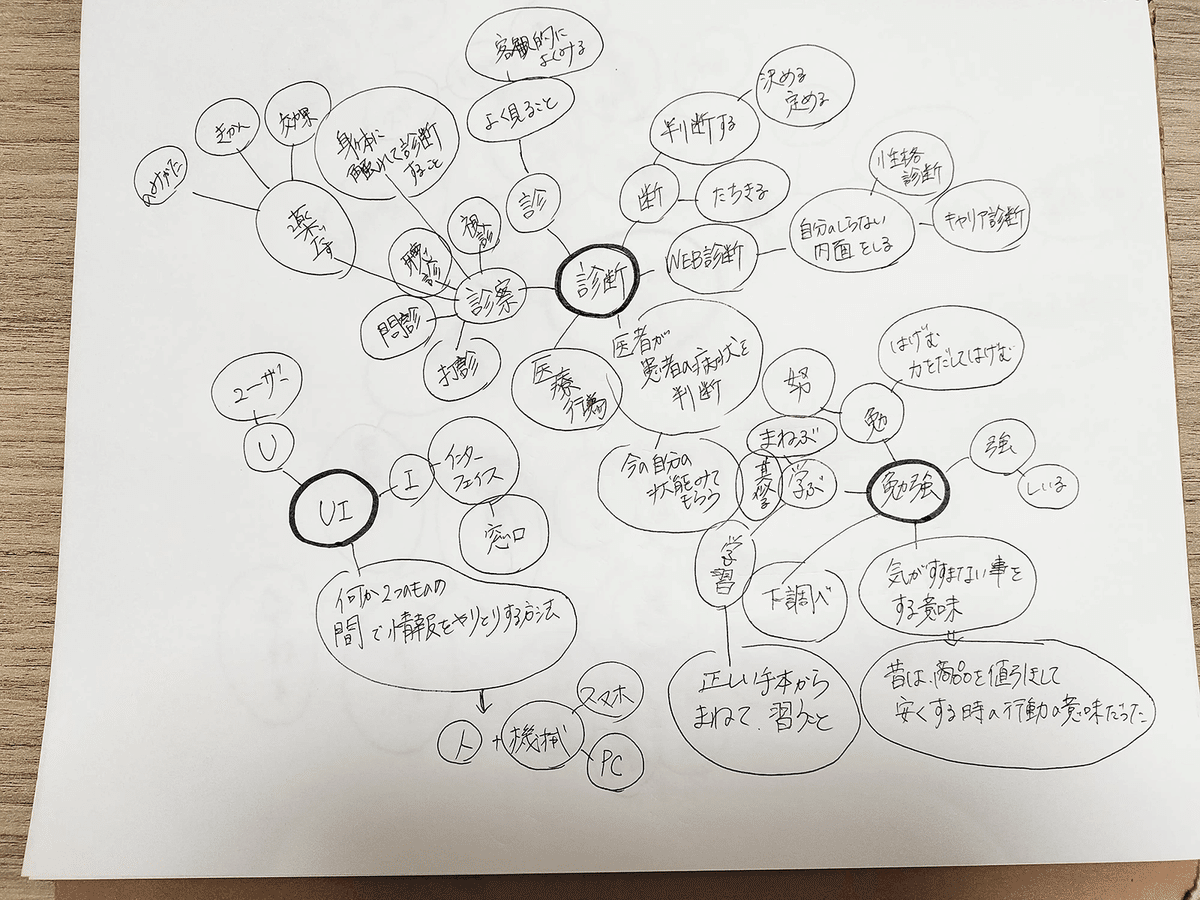 客観的に
よくみる
よく見ること
診
決める
定める
判断する
断
たちきる
性格
診断
キャリア診断
自分のしらない
内面をしる
WEB診断
診断
のみかた
きかん
効果
身体に
触れて診断
すること
薬
視診
聴診
問診
打診
診察
医療
行為
医者が
患者の病状を
判断
今の自分の
状態みて
もらう
ユーザー
U
UI
I
インター
フェイス
窓口
何か2つのものの
間で情報をやりとりする方法
人
+機械
スマホ
PC
はげむ
力をだしてはげむ
努
勉
勉強
強
しいる
まねぶ
学ぶ
学習
下調べ
正しい手本から
まねて、習うこと
気がすすまない事を
する意味
昔は、商品を値引きして
安くする時の行動の意味だった